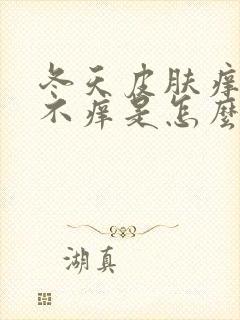 冬天皮肤痒
不痒是怎麼
湖真